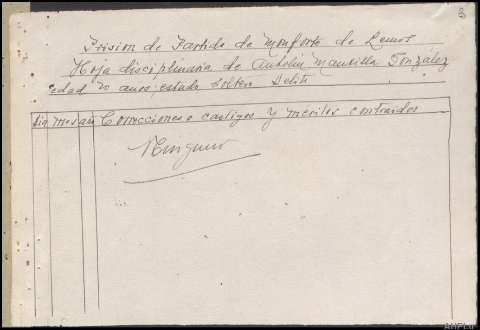 Prision de Partido de Monforte de Lemos
Hoja disciplinaria de Antolin Mansilla González
edad 20 años, estado soltero Delito
Dia mes año Correcciones o castigos y méritos contraidos
Ninguno